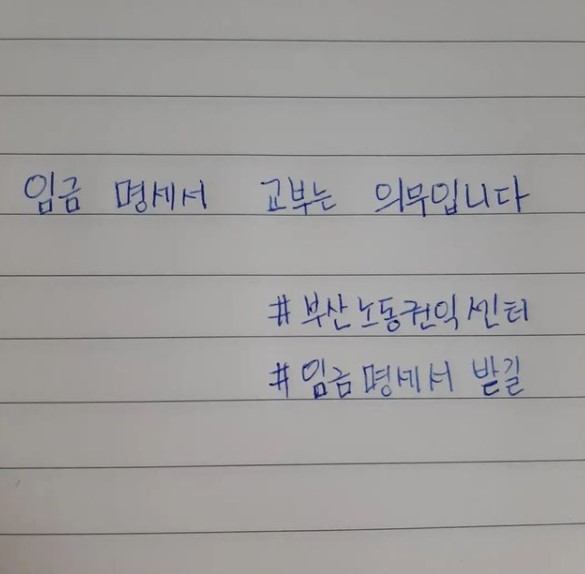 임금 명세서 교부는 의무입니다
# 부산노동권익센터
# 임금명세서 받길